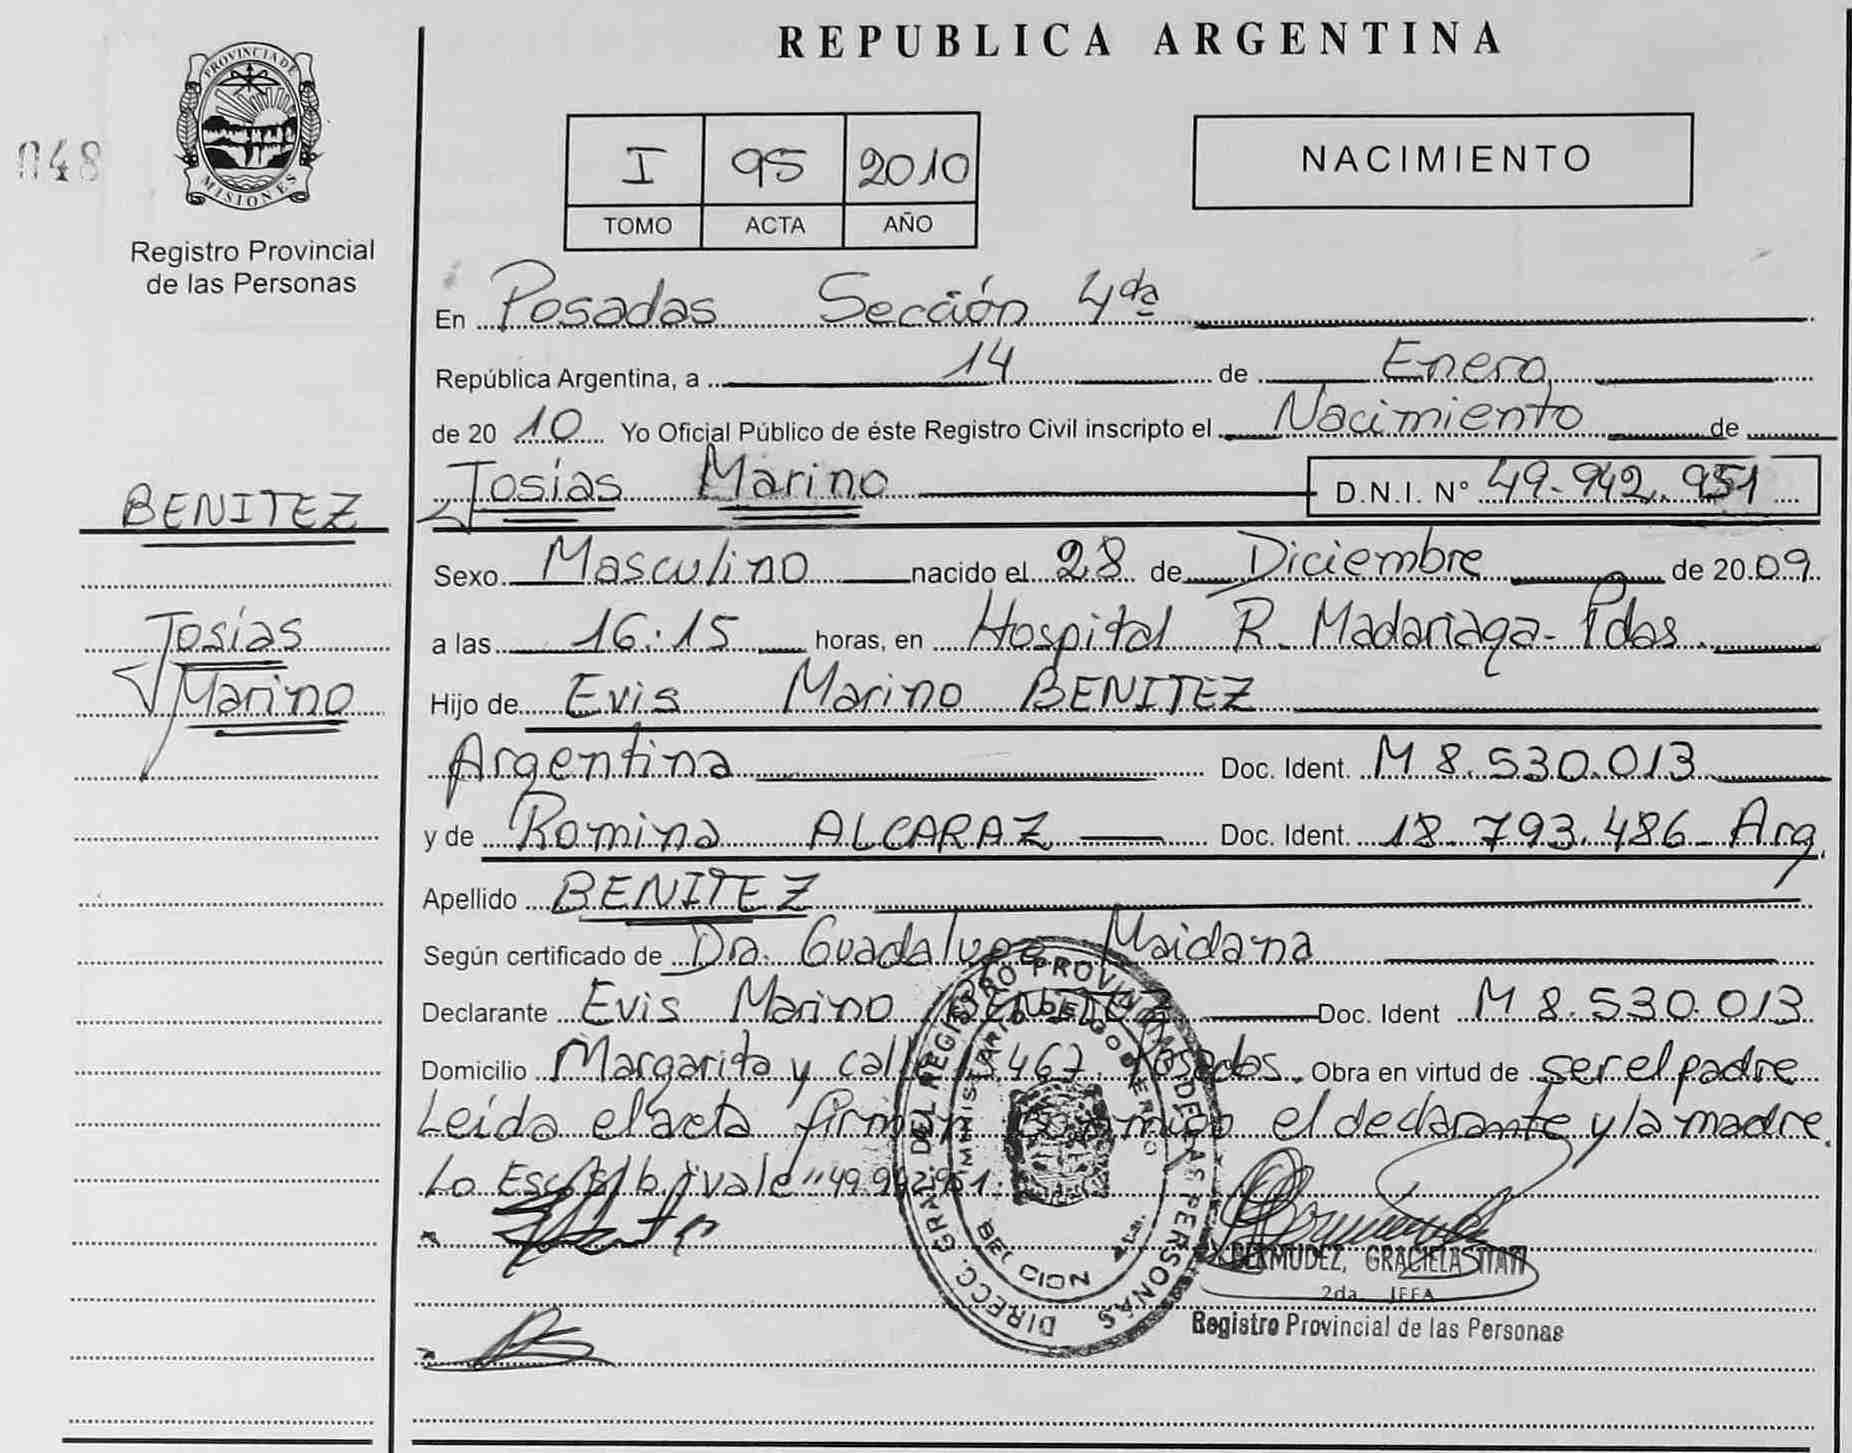 REPUBLICA ARGENTINA
PROVINCIA DE
MISIONES
048
Registro Provincial
de las Personas
I 95 2010
TOMO ACTA AÑO
NACIMIENTO
En Posadas Sección 4da
República Argentina, a 14 de Enero
de 2010 Yo Oficial Público de éste Registro Civil inscripto el Nacimiento de
Josías Marino D.N.I. N° 49.942.951
BENITEZ
Josías
Marino
Sexo Masculino nacido el 28 de Diciembre de 2009
a las 16:15 horas, en Hospital R. Madariaga - Pdas.
Hijo de Evis Marino BENITEZ
Argentina Doc. Ident. M 8.530.013
y de Romina ALCARAZ Doc. Ident. 18.793.486 - Arg.
Apellido BENITEZ
Según certificado de Dra. Guadalupe Maidana
Declarante Evis Marino BENITEZ Doc. Ident M 8.530.013
Domicilio Margarita y calle 467. Posadas. Obra en virtud de ser el padre
Leída el acta firman conmigo el declarante y la madre.
Lo Esc. s/b. vale "49.942.951.
DIRECC. GRAL. DEL REGISTRO PROVINCIAL DE LAS PERSONAS
MINISTERIO DE GOBIERNO
BERMUDEZ, GRACIELA ITATI
2da. JEFA
Registro Provincial de las Personas